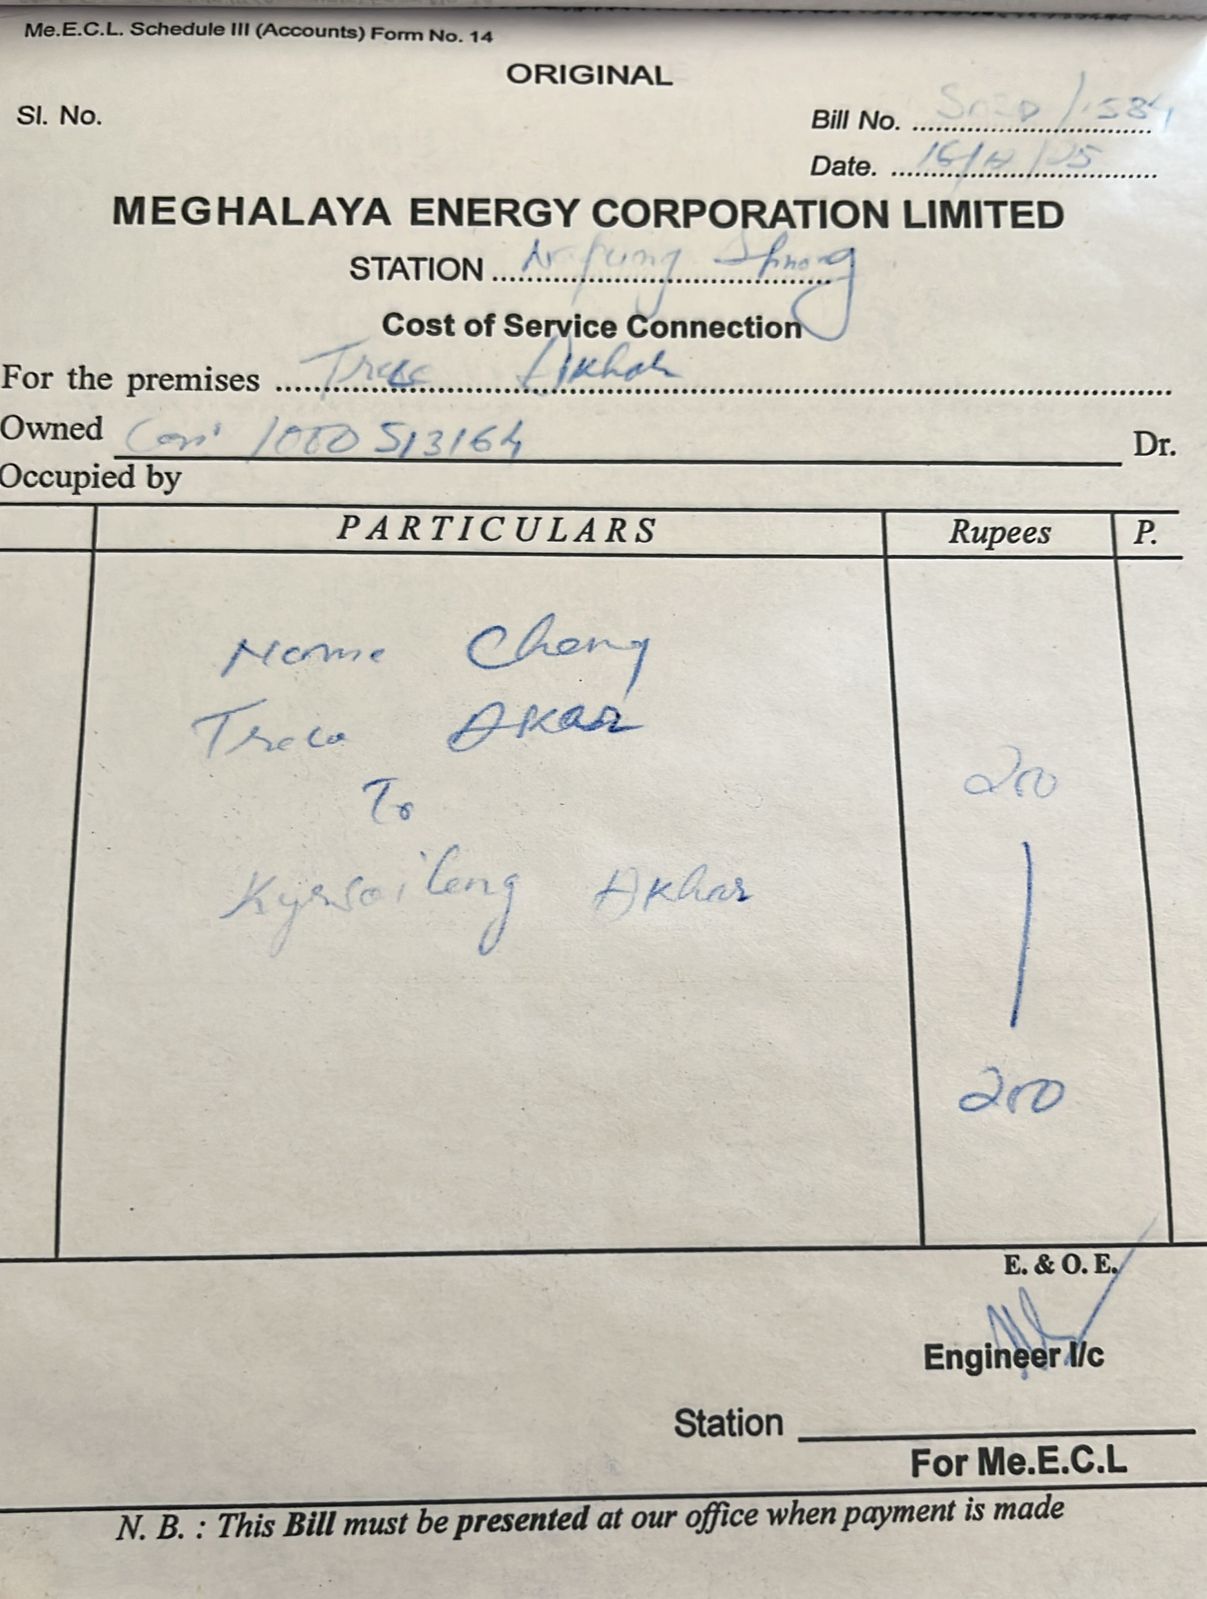 Me.E.C.L. Schedule III (Accounts) Form No. 14
ORIGINAL
Sl. No.
Bill No. /1584
Date. /25
MEGHALAYA ENERGY CORPORATION LIMITED
STATION
Cost of Service Connection
For the premises Akhar
Owned 1000513164 Dr.
Occupied by
PARTICULARS Rupees P.
Name Chang
Akar
200
To
Kyrsoileng Akhar
200
E. & O. E.
Engineer I/c
Station
For Me.E.C.L
N. B. : This Bill must be presented at our office when payment is made